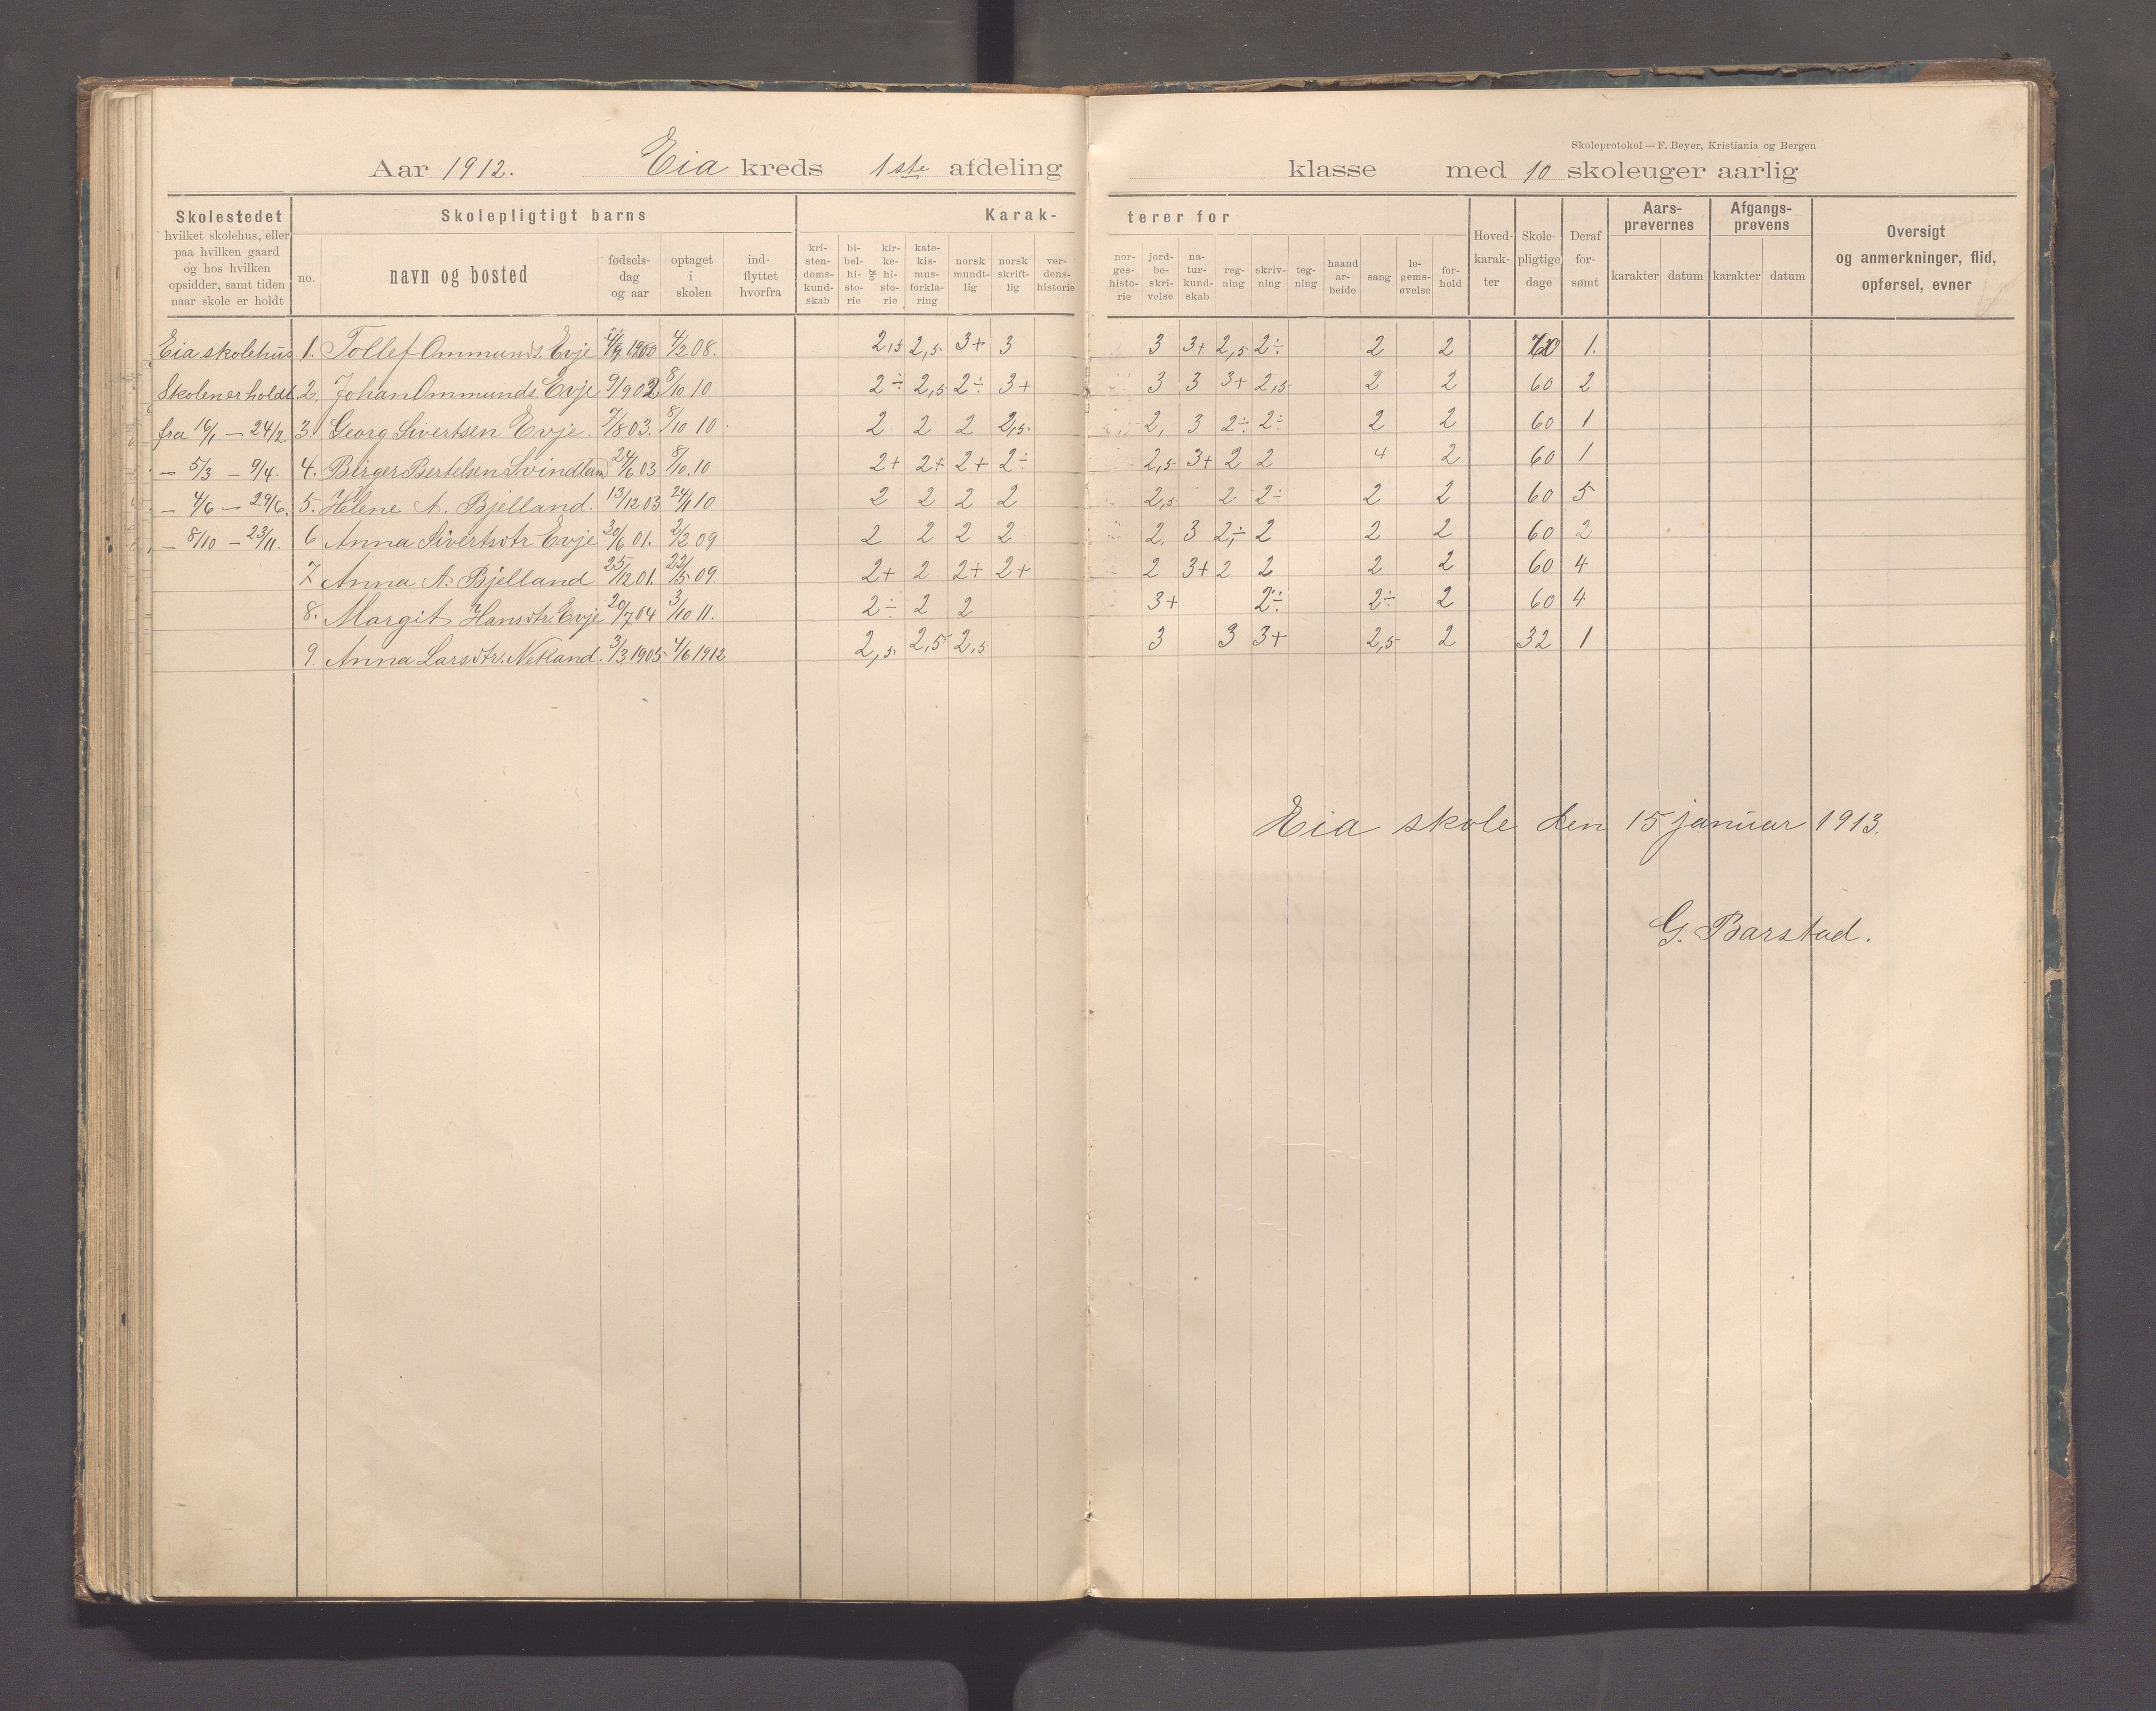 Skoleprotokol — F. Beyer, Kristiania og Bergen
Aar 1912. Eia kreds 1ste afdeling klasse med 10 skoleuger aarlig
Skolestedet hvilket skolehus, eller paa hvilken gaard og hos hvilken opsidder, samt tiden naar skole er holdt
Skolepligtigt barns
no. navn og bosted fødsels-dag og aar optaget i skolen ind-flyttet hvorfra
Karak-terer for
kri-sten-doms-kund-skab bi-bel-hi-sto-rie og kir-ke-hi-sto-rie kate-kis-mus-forkla-ring norsk mundt-lig norsk skrift-lig ver-dens-historie
nor-ges-histo-rie jord-be-skri-velse na-tur-kund-skab reg-ning skriv-ning teg-ning haand ar-beide sang le-gems-øvelse for-hold
Hoved-karak-ter Skole-pligtige dage Deraf for-sømt
Aars-prøvernes karakter datum Afgangs-prøvens karakter datum
Oversigt og anmerkninger, flid, opførsel, evner
Eia skolehus 1. Tollef Ommunds. Evje 1900 4/2 08. 2,5 2,5 3+ 3 3 3+ 2,5 2÷ 2 2 1.
Skolen er holdt 2. Johan Ommunds. Evje 9/9 02 8/10 10 2÷ 2,5 2÷ 3+ 3 3 3+ 2,5 2 2 60 2
fra 16/1 — 24/2. 3. Georg Sivertsen Evje. 7/8 03. 8/10 10 2 2 2 2,5 2, 3 2÷ 2÷ 2 2 60 1
— 5/3 — 9/4. 4. Birger Bertelsen Svindland 24/6 03 8/10. 10 2+ 2+ 2+ 2÷ 2,5 3+ 2 2 4 2 60 1
— 4/6 — 29/6. 5. Helene A. Bjelland. 13/12 03 24/1 10 2 2 2 2 2,5 2 2÷ 2 2 60 5
— 8/10 — 23/11. 6 Anna Sivertsdtr Evje 30/6 01. 2/2 09 2 2 2 2 2. 3 2,÷ 2 2 2 60 2
7. Anna A. Bjelland 25/12 01. 22/5 09. 2+ 2 2+ 2+ 2 3+ 2 2 2 2 60 4
8. Margit Hansdtr. Evje 20/7 04 3/10 11. 2÷ 2 2 3+ 2÷ 2÷ 2 60 4
9. Anna Larsdtr. Netland. 3/3 1905 4/6 1912 2,5 2,5 2,5 3 3 3+ 2,5 2 32 1
Eia skole den 15 januar 1913.
G. Barstad.